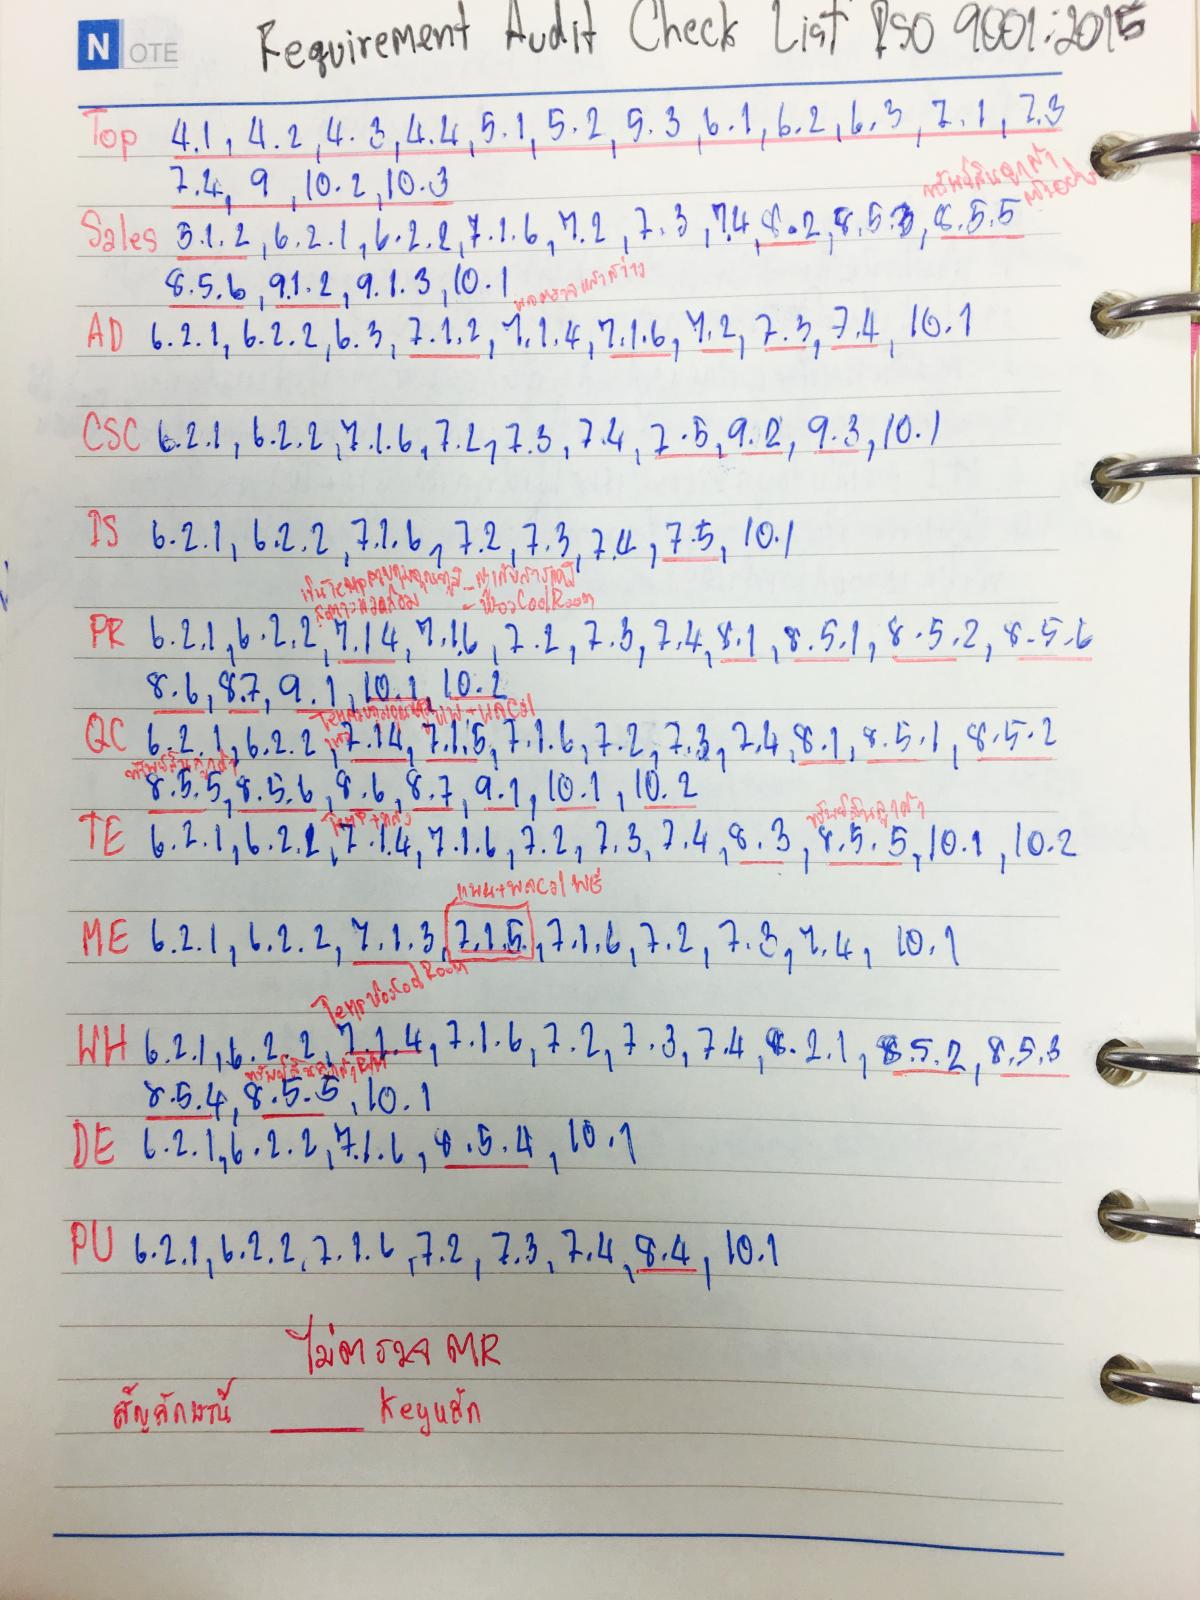 N OTE
Requirement Audit Check List ISO 9001:2015
Top 4.1, 4.2, 4.3, 4.4, 5.1, 5.2, 5.3, 6.1, 6.2, 6.3, 7.1, 7.3
7.4, 9, 10.2, 10.3
ทรัพย์สินลูกค้า
Sales 5.1.2, 6.2.1, 6.2.2, 7.1.6, 7.2, 7.3, 7.4, 8.2, 8.5.3, 8.5.5
8.5.6, 9.1.2, 9.1.3, 10.1
ผลตรวจแสงสว่าง
AD 6.2.1, 6.2.2, 6.3, 7.1.2, 7.1.4, 7.1.6, 7.2, 7.3, 7.4, 10.1
CSC 6.2.1, 6.2.2, 7.1.6, 7.2, 7.3, 7.4, 7.5, 9.2, 9.3, 10.1
IS 6.2.1, 6.2.2, 7.1.6, 7.2, 7.3, 7.4, 7.5, 10.1
- ห้อง Cool Room
PR 6.2.1, 6.2.2, 7.1.4, 7.1.6, 7.2, 7.3, 7.4, 8.1, 8.5.1, 8.5.2, 8.5.6
8.6, 8.7, 9.1, 10.1, 10.2
QC 6.2.1, 6.2.2, 7.1.4, 7.1.5, 7.1.6, 7.2, 7.3, 7.4, 8.1, 8.5.1, 8.5.2
ทรัพย์สินลูกค้า
8.5.5, 8.5.6, 8.6, 8.7, 9.1, 10.1, 10.2
ทรัพย์สินลูกค้า
TE 6.2.1, 6.2.2, 7.1.4, 7.1.6, 7.2, 7.3, 7.4, 8.3, 8.5.5, 10.1, 10.2
แผน+ผลCal
ME 6.2.1, 6.2.2, 7.1.3, 7.1.5, 7.1.6, 7.2, 7.3, 7.4, 10.1
Temp ห้อง Cool Room
WH 6.2.1, 6.2.2, 7.1.4, 7.1.6, 7.2, 7.3, 7.4, 8.2.1, 8.5.2, 8.5.3
ทรัพย์สินลูกค้า RM
8.5.4, 8.5.5, 10.1
DE 6.2.1, 6.2.2, 7.1.6, 8.5.4, 10.1
PU 6.2.1, 6.2.2, 7.1.6, 7.2, 7.3, 7.4, 8.4, 10.1
ไม่ตรวจ MR
สัญลักษณ์ Keyหลัก